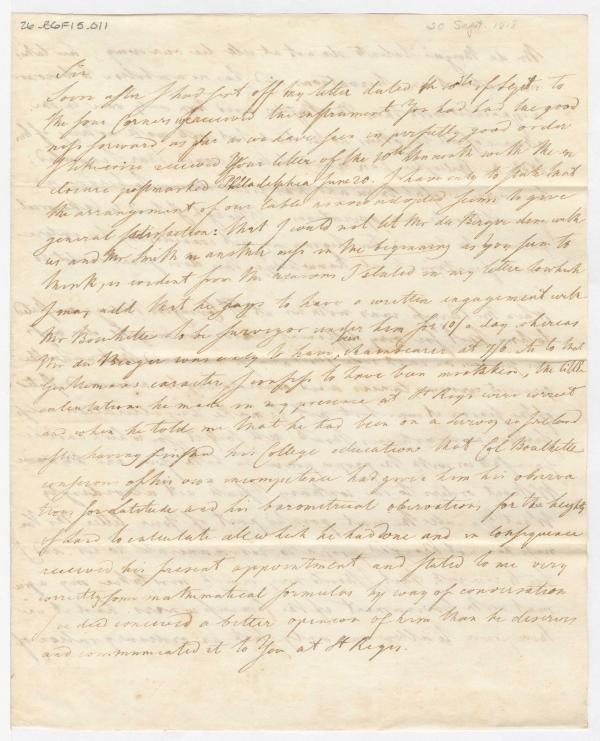 26-EGF15.011
20 Sept. 1818
Sir
Soon after I had sent off my letter dated the 10th of Sept. to
the four Corners I received the instrument You had had the good
ness forward as far as we have seen in perfectly good order
I likewise received Your letter of the 10th this month with the en
closure postmarked Philadelphia June 20. I have only to state that
the arrangement of our table as now adopted seems to give
general satisfaction: that I could not let Mr du Berger done with
us and Mr Smith in another mess in the beginning as You seem to
think, is evident from the reasons I stated in my letter to which
I may add that he says to have a written engagement with
Mr Bouhette to be surveyor under him for 10/ a day whereas
Mr du Berger was only to have been chainbearer at 7/6. As to that
Gentlemans caracter I confess to have been mistaken, the little
calculations he made in my presence at St Regis were correct
and when he told me that he had been on a survey in Ireland
after having finished his College education that Col Bouhette
conscious of his own incompetence had given him his observa
tions for latitude and his barometrical observations for the heights
of land to calculate all which he had done and in consequence
received his present appointment and stated to me very
correctly some mathematical formulas by way of conversation
I indeed conceived a better opinion of him than he deserves
and communicated it to You at St Regis.